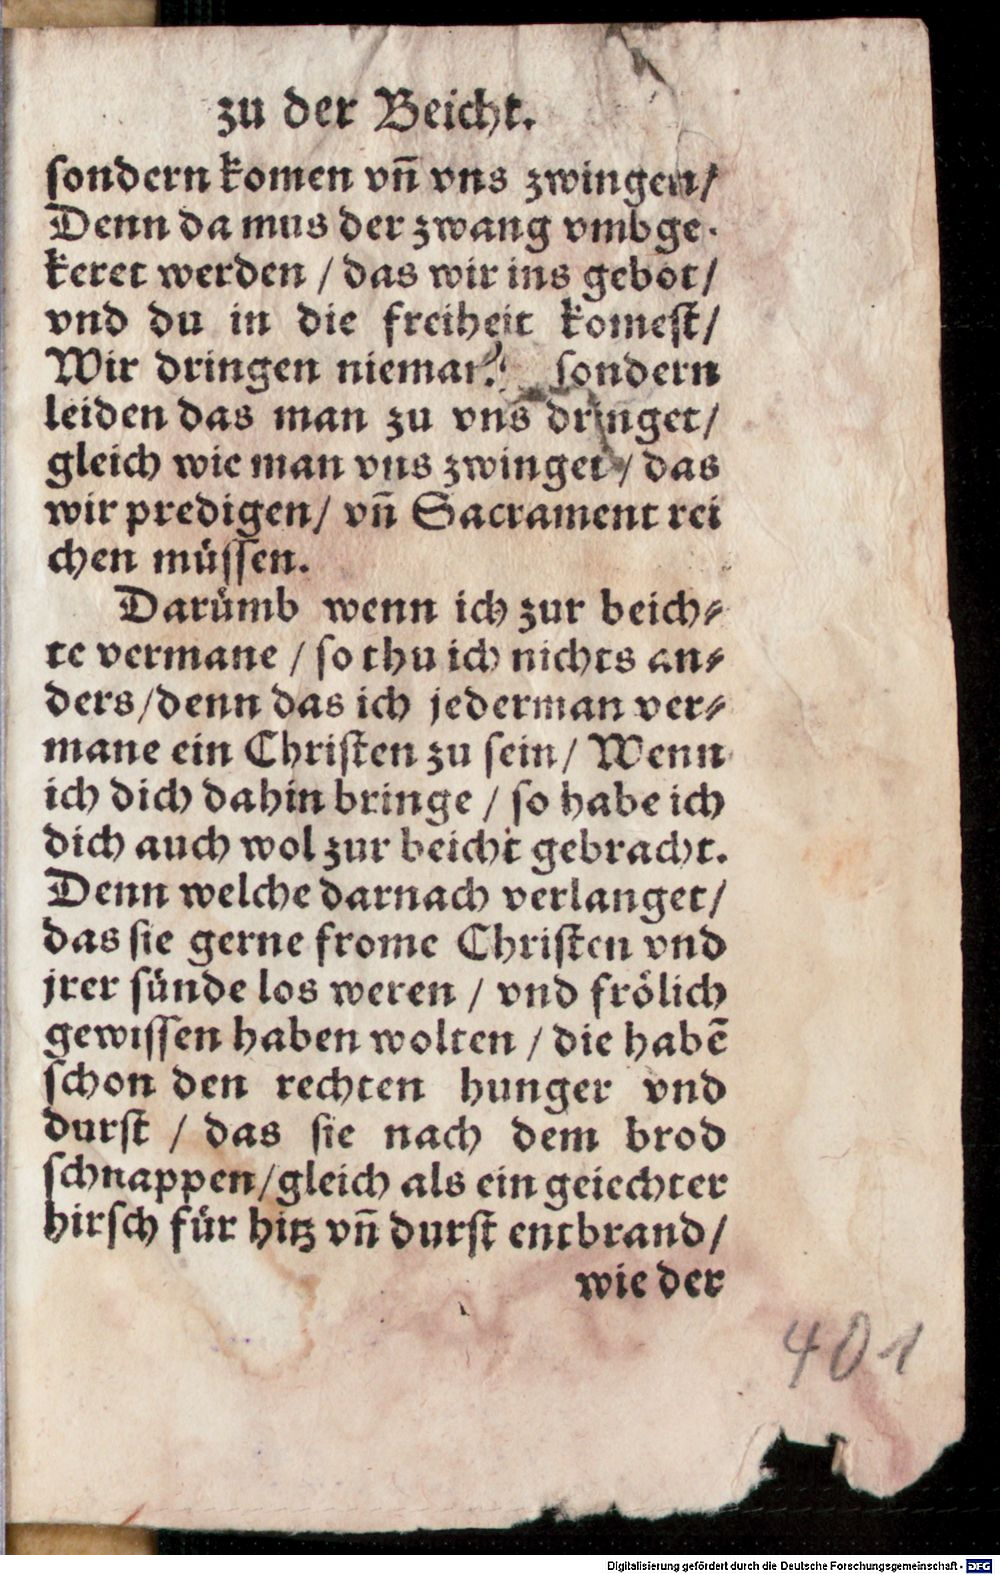 zu der Beicht.
sondern komen vn̄ vns zwingen/
Denn da mus der zwang vmbge-
keret werden / das wir ins gebot/
vnd du in die freiheit komest/
Wir dringen nieman sondern
leiden das man zu vns dringet/
gleich wie man vns zwinget / das
wir predigen/ vn̄ Sacrament rei
chen müssen.
Darümb wenn ich zur beich-
te vermane / so thu ich nichts an-
ders/denn das ich jederman ver-
mane ein Christen zu sein/ Wenn
ich dich dahin bringe / so habe ich
dich auch wol zur beicht gebracht.
Denn welche darnach verlanget/
das sie gerne frome Christen vnd
jrer sünde los weren / vnd frölich
gewissen haben wolten / die habē
schon den rechten hunger vnd
durst / das sie nach dem brod
schnappen/gleich als ein geiechter
hirsch für hitz vn̄ durst entbrand/
wie der
401
Digitalisierung gefördert durch die Deutsche Forschungsgemeinschaft - DFG